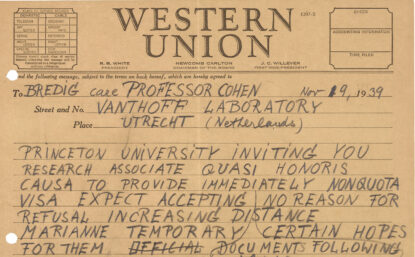 WESTERN
UNION
1207-B
CHECK
ACCOUNTING INFORMATION
TIME FILED
R. B. WHITE
PRESIDENT
NEWCOMB CARLTON
CHAIRMAN OF THE BOARD
J. C. WILLEVER
FIRST VICE-PRESIDENT
nd the following message, subject to the terms on back hereof, which are hereby agreed to
To BREDIG care PROFESSOR COHEN Nov 19, 1939
Street and No. VANTHOFF LABORATORY
Place UTRECHT (Netherlands)
PRINCETON UNIVERSITY INVITING YOU
RESEARCH ASSOCIATE QUASI HONORIS
CAUSA TO PROVIDE IMMEDIATELY NONQUOTA
VISA EXPECT ACCEPTING NO REASON FOR
REFUSAL INCREASING DISTANCE
MARIANNE TEMPORARY CERTAIN HOPES
FOR THEM. OFFICIAL DOCUMENTS FOLLOWING